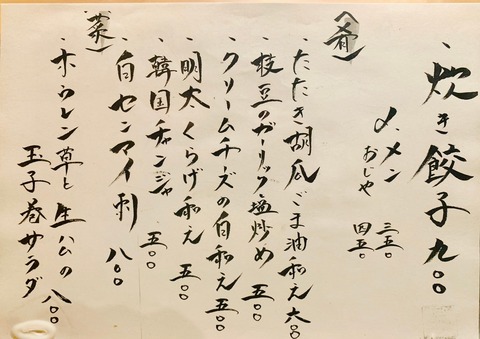 ・炊き餃子 九〇〇
〆、メン 三五〇
おじや 四五〇
〈肴〉
・たたき胡瓜ごま油和え 六〇〇
・枝豆のガーリック塩炒め 五〇〇
・クリームチーズの白和え 五〇〇
・明太くらげ和え 五〇〇
・韓国チャンジャ 五〇〇
・白センマイ刺 八〇〇
〈菜〉
・ホウレン草と生ハムの 八〇〇
玉子巻サラダ